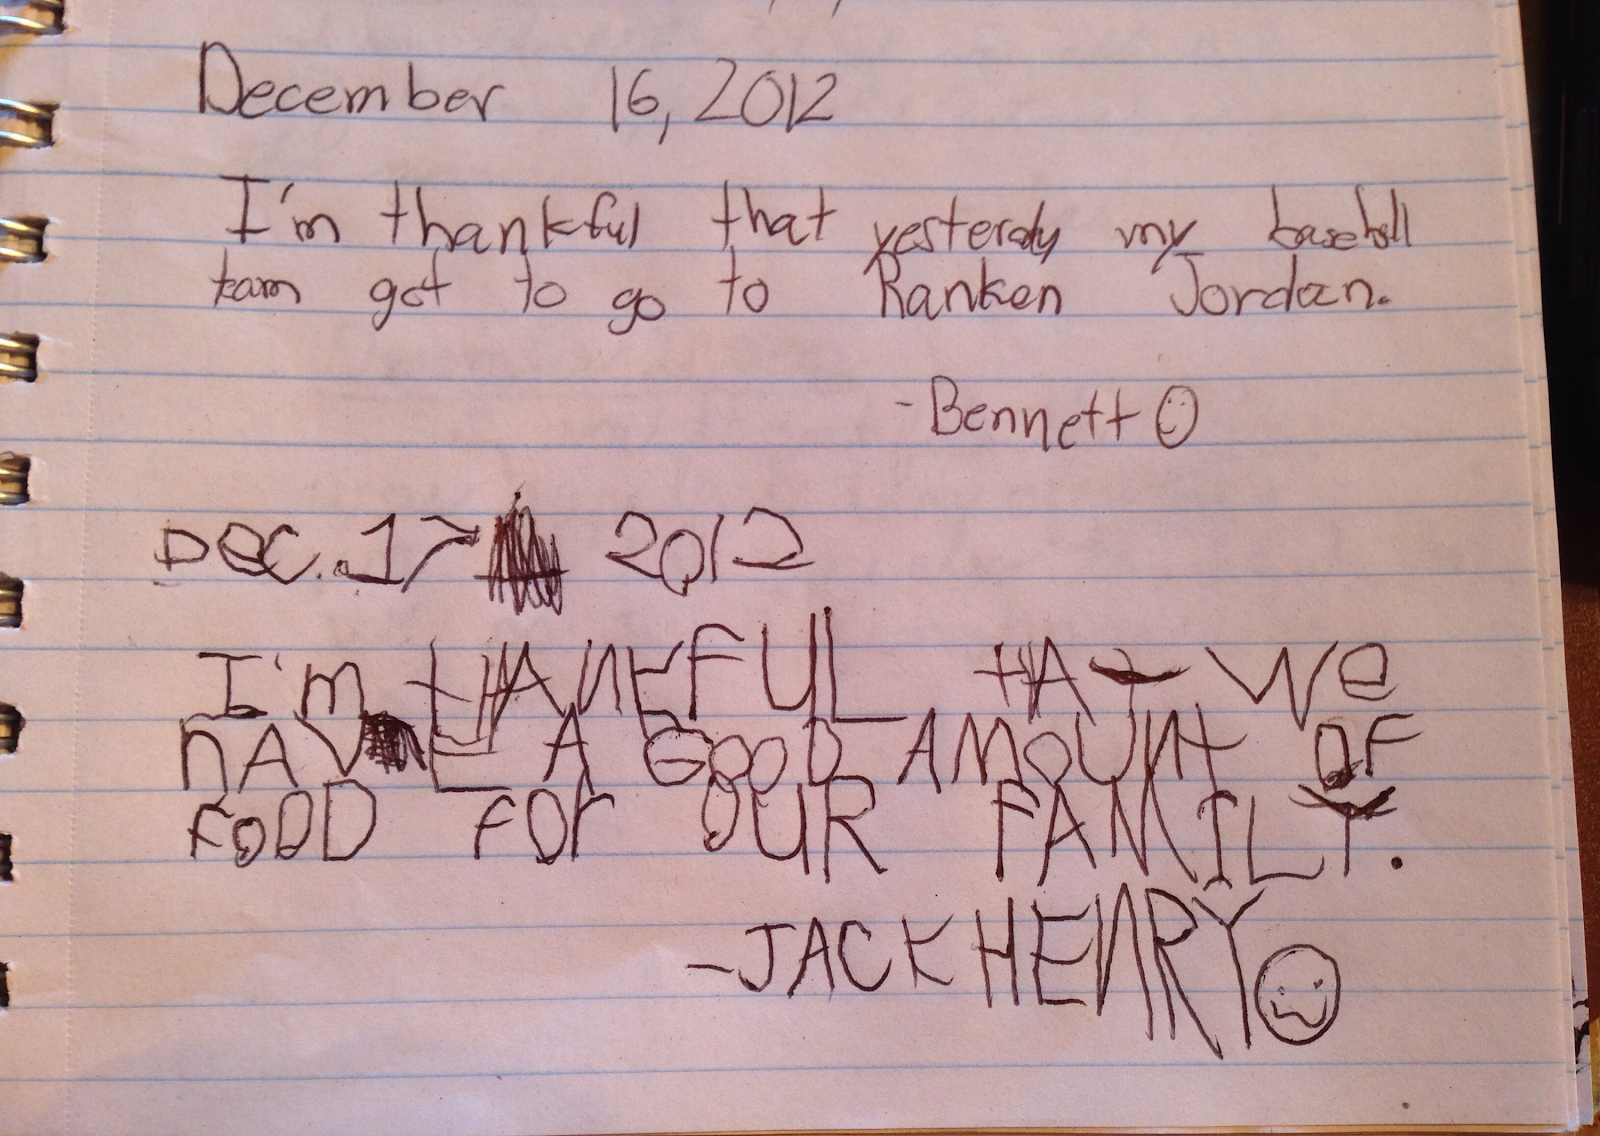 December 16, 2012
I'm thankful that yesterday my baseball
team got to go to Ranken Jordan.
-Bennett
DEC. 17 2012
I'm tHANKFUL tHAt We
hAVE A GOOD AMOUNt OF
FOOD FOr OUR FAMILY.
-JACK HENRY